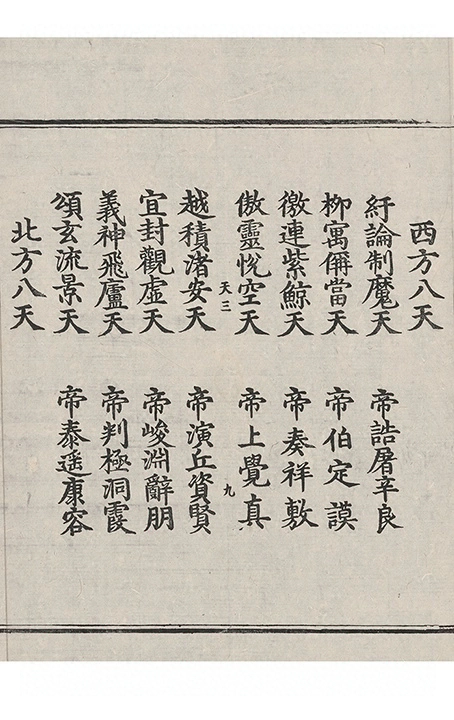 西方八天
紆論制魔天 帝誥屠辛良
柳寓儕當天 帝伯定謨
徼連紫鯨天 帝奏祥敷
傲靈悅空天 帝上覺真
天三 九
越積渚安天 帝演丘資賢
宜封觀虛天 帝峻淵辭朋
義神飛廬天 帝判極洞霞
頌玄流景天 帝泰遥康容
北方八天